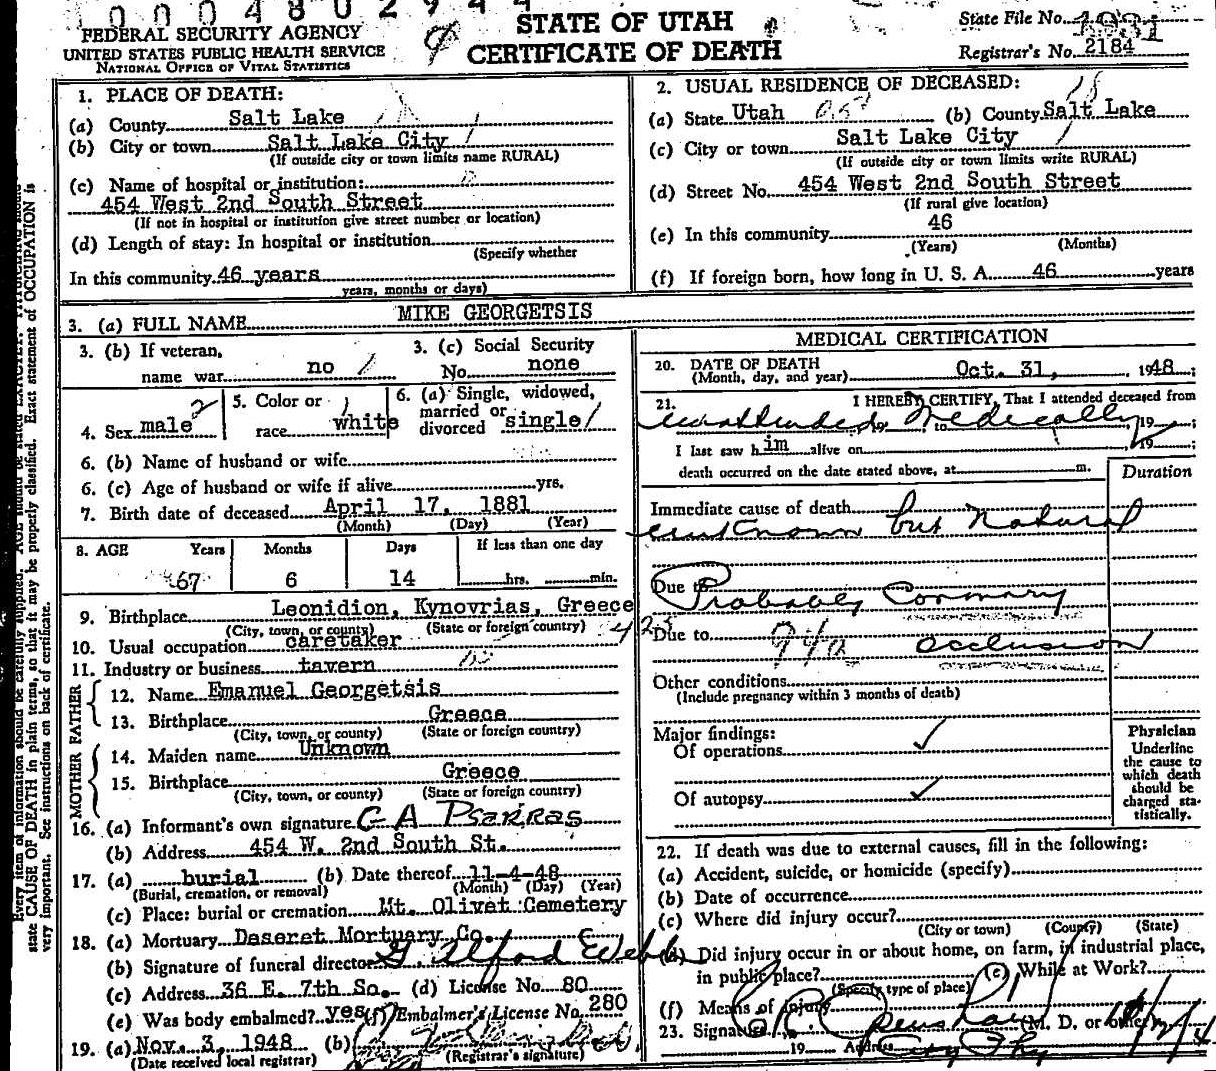 0004802944
FEDERAL SECURITY AGENCY
UNITED STATES PUBLIC HEALTH SERVICE
NATIONAL OFFICE OF VITAL STATISTICS
STATE OF UTAH
CERTIFICATE OF DEATH
State File No.
Registrar's No. 2184
1. PLACE OF DEATH:
(a) County Salt Lake
(b) City or town Salt Lake City
(If outside city or town limits name RURAL)
(c) Name of hospital or institution:
454 West 2nd South Street
(If not in hospital or institution give street number or location)
(d) Length of stay: In hospital or institution
(Specify whether
In this community 46 years
years, months or days)
2. USUAL RESIDENCE OF DECEASED:
(a) State Utah (b) County Salt Lake
(c) City or town Salt Lake City
(If outside city or town limits write RURAL)
(d) Street No. 454 West 2nd South Street
(If rural give location)
(e) In this community 46
(Years) (Months)
(f) If foreign born, how long in U. S. A. 46 years
3. (a) FULL NAME MIKE GEORGETSIS
3. (b) If veteran, name war no
3. (c) Social Security No. none
4. Sex male
5. Color or race white
6. (a) Single, widowed, married or divorced single
6. (b) Name of husband or wife
6. (c) Age of husband or wife if alive yrs.
7. Birth date of deceased April 17, 1881
(Month) (Day) (Year)
8. AGE Years Months Days If less than one day
67 6 14 hrs. min.
9. Birthplace Leonidion, Kynovrias, Greece
(City, town, or county) (State or foreign country)
10. Usual occupation caretaker
11. Industry or business tavern
FATHER
12. Name Emanuel Georgetsis
13. Birthplace Greece
(City, town, or county) (State or foreign country)
MOTHER
14. Maiden name Unknown
15. Birthplace Greece
(City, town, or county) (State or foreign country)
16. (a) Informant's own signature G A Psarras
(b) Address 454 W. 2nd South St.
17. (a) burial (b) Date thereof 11-4-48
(Burial, cremation, or removal) (Month) (Day) (Year)
(c) Place: burial or cremation Mt. Olivet Cemetery
18. (a) Mortuary Deseret Mortuary Co.
(b) Signature of funeral director
(c) Address 36 E. 7th So. (d) License No. 80
(e) Was body embalmed? yes (f) Embalmer's License No. 280
19. (a) Nov. 3, 1948 (b)
(Date received local registrar) (Registrar's signature)
MEDICAL CERTIFICATION
20. DATE OF DEATH
(Month, day, and year) Oct. 31, 1948;
21. I HEREBY CERTIFY, That I attended deceased from
unattended Medically 19 ;
I last saw him alive on 19 ;
death occurred on the date stated above, at m.
Duration
Immediate cause of death
unknown but Natural
Due to Probably Coronary
Due to occlusion
Other conditions
(Include pregnancy within 3 months of death)
Major findings:
Of operations
Of autopsy
Physician
Underline
the cause to
which death
should be
charged sta-
tistically.
22. If death was due to external causes, fill in the following:
(a) Accident, suicide, or homicide (specify)
(b) Date of occurrence
(c) Where did injury occur?
(City or town) (County) (State)
(d) Did injury occur in or about home, on farm, in industrial place,
in public place? (e) While at Work?
(Specify type of place)
(f) Means of Injury
23. Signature (M. D. or other)
19 Address City Phy
state CAUSE OF DEATH in plain terms, so that it may be properly classified. Exact statement of OCCUPATION is
very important. See instructions on back of certificate.